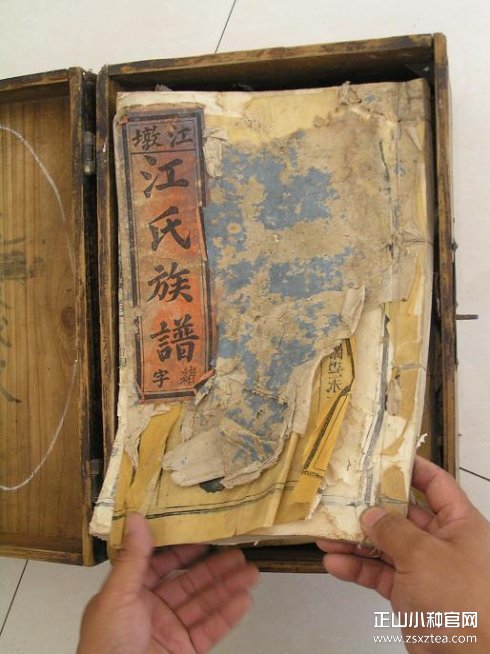 江墩
江氏族譜
緒字
正山小种官网
www.zsxztea.com